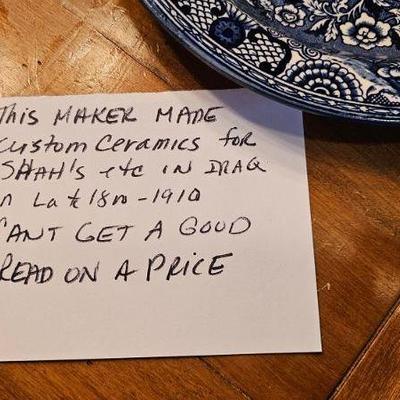 This MAKER MADE
Custom CERAMICS for
SHAH'S etc IN IRAQ
n Late 18oo - 1910
CANT GET A GOOD
READ ON A PRICE